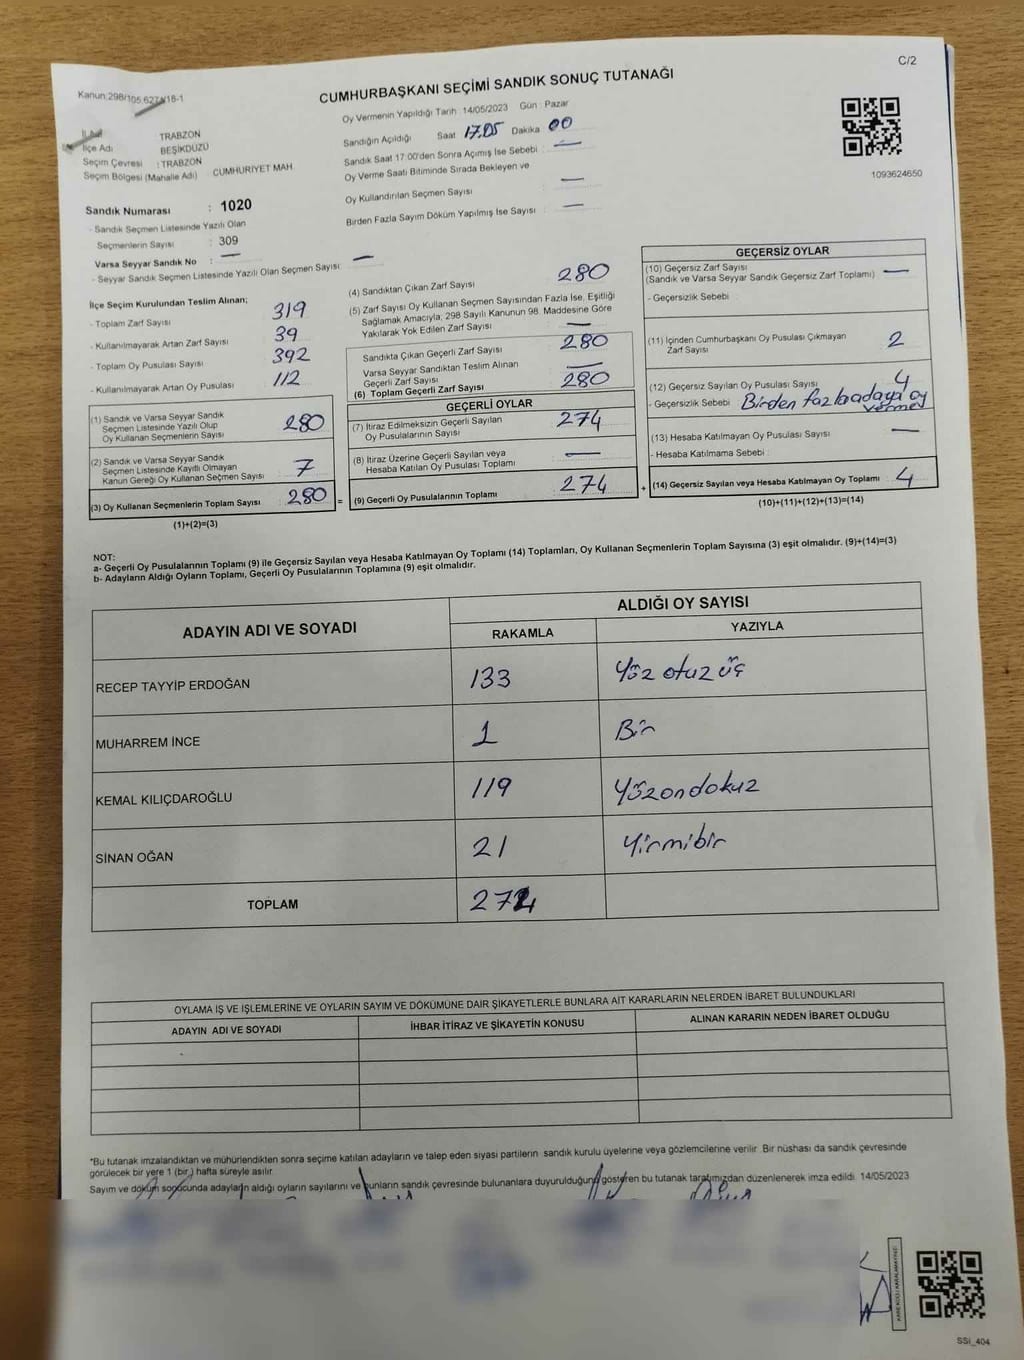 C/2
Kanun:298/105,627418-1
CUMHURBAŞKANI SEÇİMİ SANDIK SONUÇ TUTANAĞI
Oy Vermenin Yapıldığı Tarih : 14/05/2023 Gün : Pazar
İl Adı TRABZON
İlçe Adı BEŞİKDÜZÜ
Seçim Çevresi : TRABZON
Seçim Bölgesi (Mahalle Adı) : CUMHURİYET MAH.
Sandığın Açıldığı Saat 17.05 Dakika 00
Sandık Saat 17:00'den Sonra Açımış İse Sebebi : —
Oy Verme Saati Bitiminde Sırada Bekleyen ve
Oy Kullandırılan Seçmen Sayısı —
Birden Fazla Sayım Döküm Yapılmış İse Sayısı : —
1093624650
Sandık Numarası : 1020
- Sandık Seçmen Listesinde Yazılı Olan
Seçmenlerin Sayısı : 309
Varsa Seyyar Sandık No : —
- Seyyar Sandık Seçmen Listesinde Yazılı Olan Seçmen Sayısı: —
İlçe Seçim Kurulundan Teslim Alınan;
- Toplam Zarf Sayısı 319
- Kullanılmayarak Artan Zarf Sayısı : 39
- Toplam Oy Pusulası Sayısı : 392
- Kullanılmayarak Artan Oy Pusulası : 112
(1) Sandık ve Varsa Seyyar Sandık
Seçmen Listesinde Yazılı Olup
Oy Kullanan Seçmenlerin Sayısı 280
(2) Sandık ve Varsa Seyyar Sandık
Seçmen Listesinde Kayıtlı Olmayan
Kanun Gereği Oy Kullanan Seçmen Sayısı : 7
(3) Oy Kullanan Seçmenlerin Toplam Sayısı 280 =
(1)+(2)=(3)
(4) Sandıktan Çıkan Zarf Sayısı 280
(5) Zarf Sayısı Oy Kullanan Seçmen Sayısından Fazla İse, Eşitliği
Sağlamak Amacıyla, 298 Sayılı Kanunun 98. Maddesine Göre
Yakılarak Yok Edilen Zarf Sayısı —
Sandıkta Çıkan Geçerli Zarf Sayısı 280
Varsa Seyyar Sandıktan Teslim Alınan
Geçerli Zarf Sayısı —
(6) Toplam Geçerli Zarf Sayısı 280
GEÇERLİ OYLAR
(7) İtiraz Edilmeksizin Geçerli Sayılan
Oy Pusulalarının Sayısı 274
(8) İtiraz Üzerine Geçerli Sayılan veya
Hesaba Katılan Oy Pusulası Toplamı —
(9) Geçerli Oy Pusulalarının Toplamı 274 +
GEÇERSİZ OYLAR
(10) Geçersiz Zarf Sayısı
(Sandık ve Varsa Seyyar Sandık Geçersiz Zarf Toplamı) —
- Geçersizlik Sebebi
(11) İçinden Cumhurbaşkanı Oy Pusulası Çıkmayan
Zarf Sayısı 2
(12) Geçersiz Sayılan Oy Pusulası Sayısı 4
- Geçersizlik Sebebi : Birden fazla adaya oy
verme
(13) Hesaba Katılmayan Oy Pusulası Sayısı —
- Hesaba Katılmama Sebebi :
(14) Geçersiz Sayılan veya Hesaba Katılmayan Oy Toplamı 4
(10)+(11)+(12)+(13)=(14)
NOT:
a- Geçerli Oy Pusulalarının Toplamı (9) ile Geçersiz Sayılan veya Hesaba Katılmayan Oy Toplamı (14) Toplamları, Oy Kullanan Seçmenlerin Toplam Sayısına (3) eşit olmalıdır. (9)+(14)=(3)
b- Adayların Aldığı Oyların Toplamı, Geçerli Oy Pusulalarının Toplamına (9) eşit olmalıdır.
ADAYIN ADI VE SOYADI ALDIĞI OY SAYISI
RAKAMLA YAZIYLA
RECEP TAYYİP ERDOĞAN 133 Yüz otuz üç
MUHARREM İNCE 1 Bir
KEMAL KILIÇDAROĞLU 119 Yüzondokuz
SİNAN OĞAN 21 Yirmibir
TOPLAM 274
OYLAMA İŞ VE İŞLEMLERİNE VE OYLARIN SAYIM VE DÖKÜMÜNE DAİR ŞİKAYETLERLE BUNLARA AİT KARARLARIN NELERDEN İBARET BULUNDUKLARI
ADAYIN ADI VE SOYADI İHBAR İTİRAZ VE ŞİKAYETİN KONUSU ALINAN KARARIN NEDEN İBARET OLDUĞU
*Bu tutanak imzalandıktan ve mühürlendikten sonra seçime katılan adayların ve talep eden siyasi partilerin sandık kurulu üyelerine veya gözlemcilerine verilir. Bir nüshası da sandık çevresinde
görülecek bir yere 1 (bir) hafta süreyle asılır.
Sayım ve döküm sonucunda adayların aldığı oyların sayılarını ve bunların sandık çevresinde bulunanlara duyurulduğunu gösteren bu tutanak tarafımızdan düzenlenerek imza edildi. 14/05/2023
SSİ_404